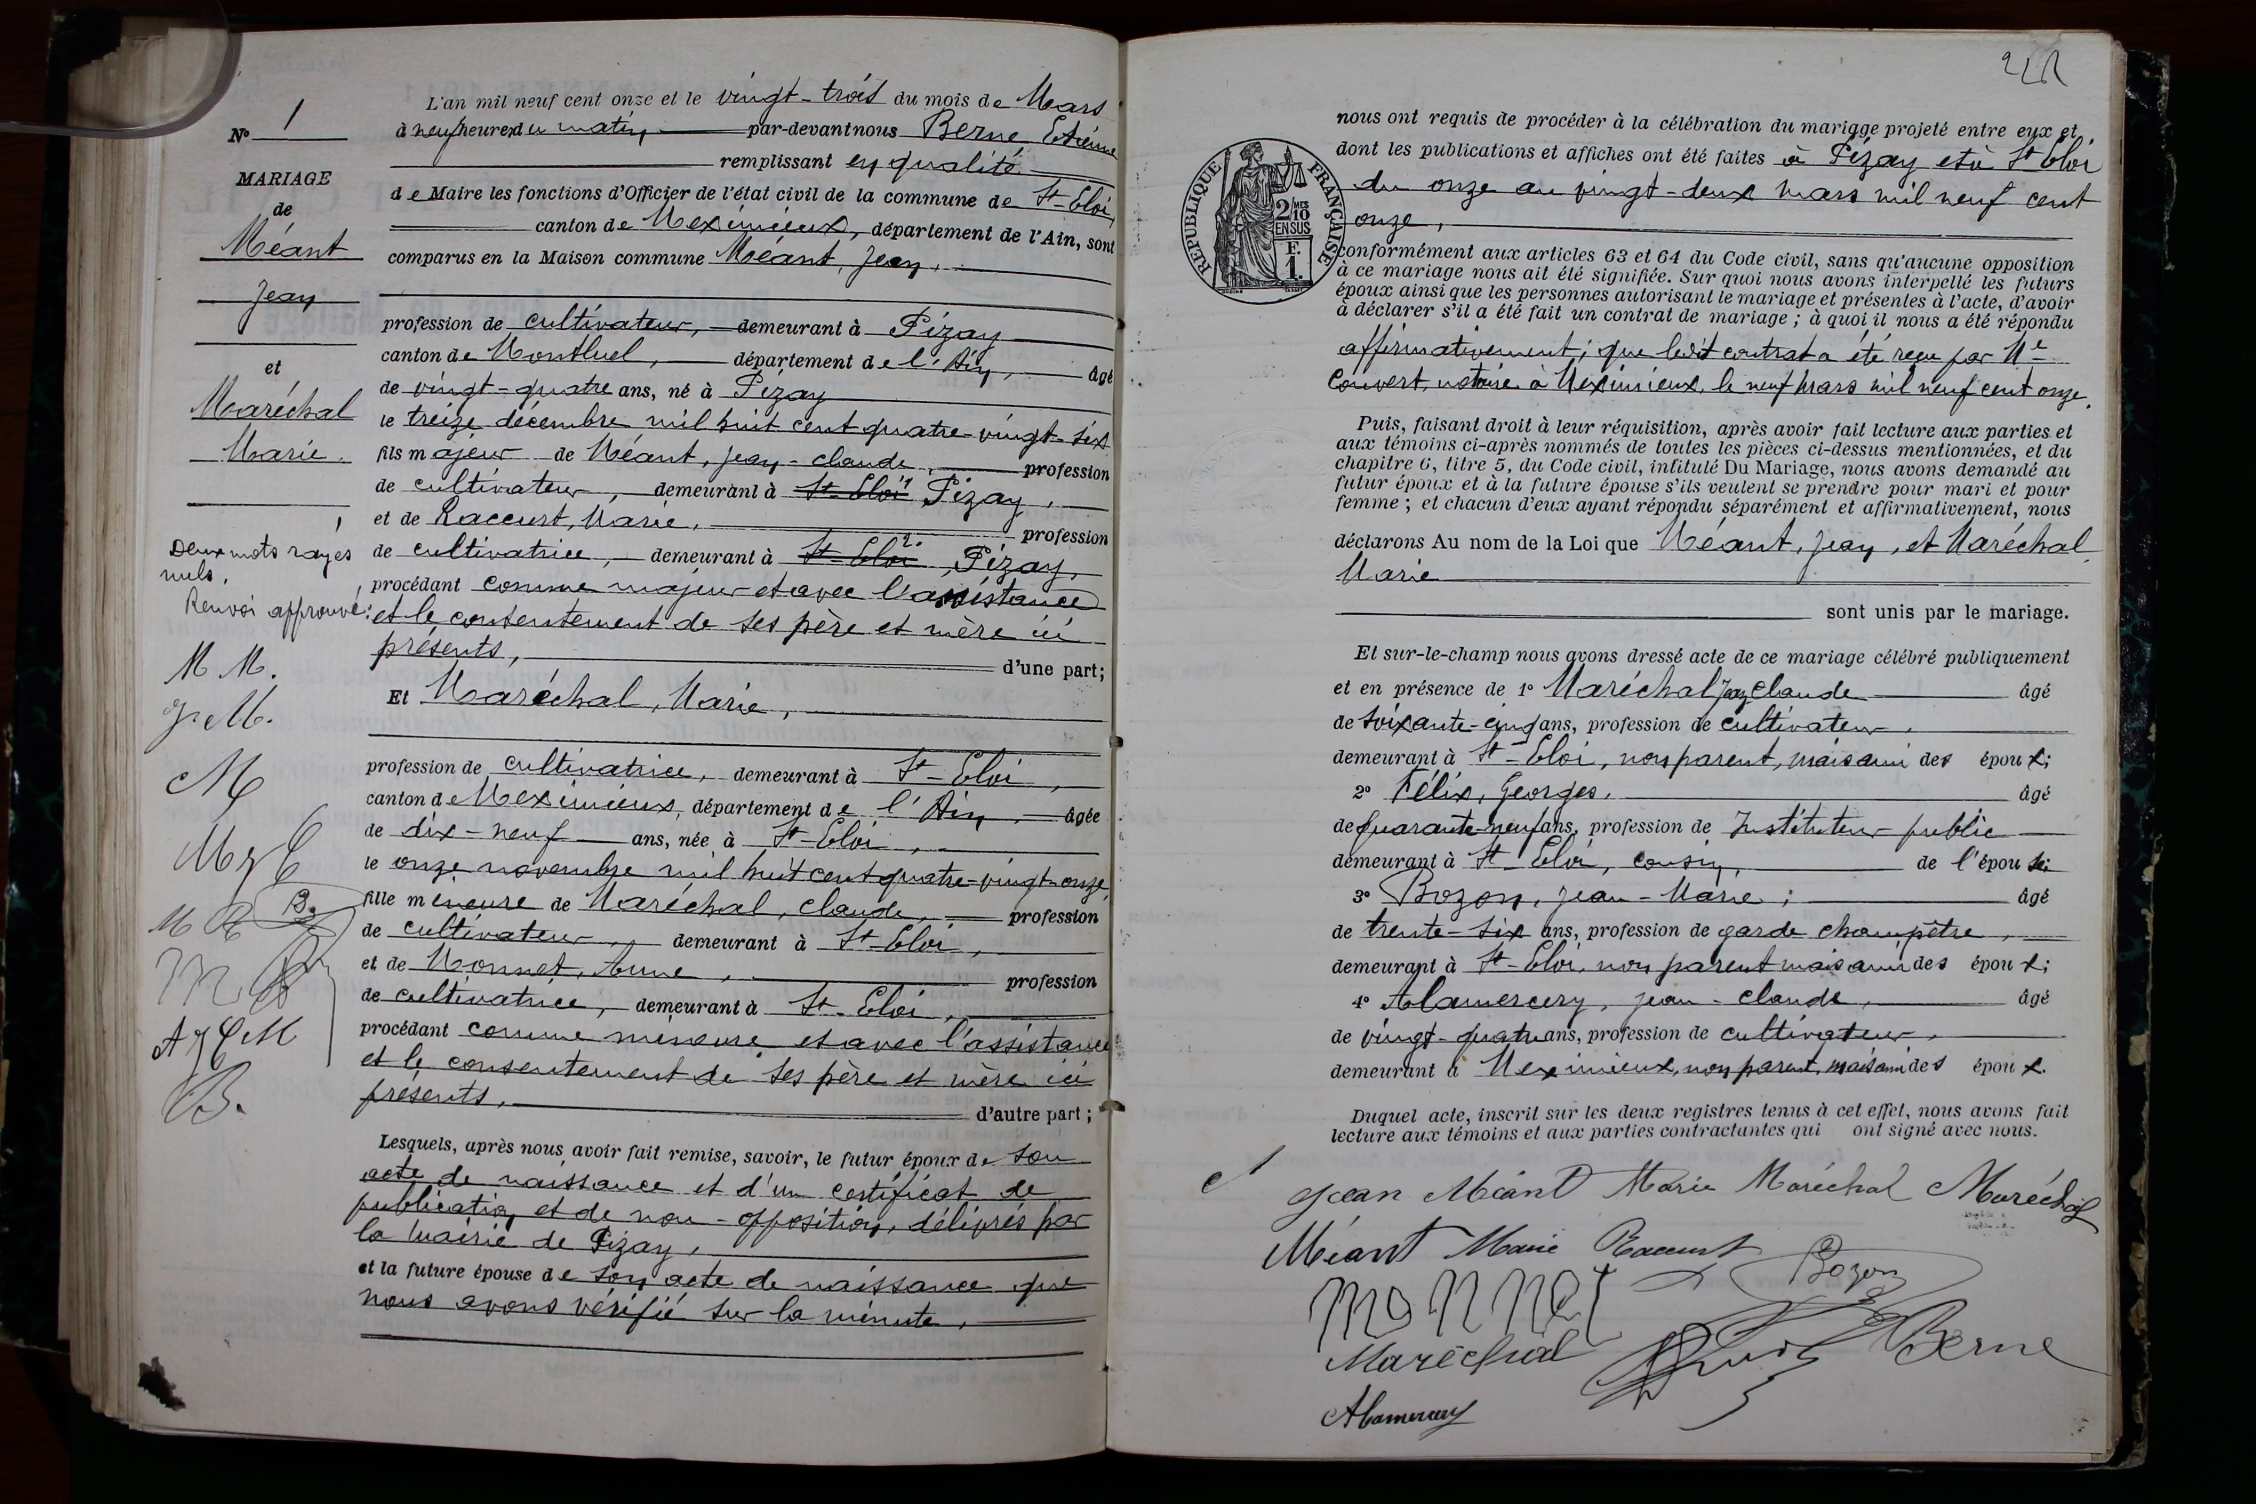 N° 1
MARIAGE
de
Méant
Jean
et
Maréchal
Marie.
Deux mots rayés
nuls.
Renvoi approuvé:
M M.
J. M.
M
M J C
M R B.
A J C M
B.
L'an mil neuf cent onze et le vingt-trois du mois de Mars
à neuf heures du matin par-devant nous Berne, Etienne
remplissant en qualité
de Maire les fonctions d'Officier de l'état civil de la commune de St-Eloi,
canton de Meximieux, département de l'Ain, sont
comparus en la Maison commune Méant, Jean,
profession de cultivateur, demeurant à Pizay
canton de Montluel, département de l'Ain, âgé
de vingt-quatre ans, né à Pizay
le treize décembre mil huit cent quatre-vingt-six
fils majeur de Méant, Jean-Claude, profession
de cultivateur, demeurant à St-Eloi 1 Pizay,
et de Raccurt, Marie, profession
de cultivatrice, demeurant à St-Eloi 2. Pizay,
procédant comme majeur et avec l'assistance
et le consentement de ses père et mère ici
présents, d'une part;
Et Maréchal, Marie,
profession de cultivatrice, demeurant à St-Eloi,
canton de Meximieux, département de l'Ain, âgée
de dix-neuf ans, née à St-Eloi,
le onze novembre mil huit cent quatre-vingt-onze,
fille mineure de Maréchal, Claude, profession
de cultivateur, demeurant à St-Eloi,
et de Monnet, Anne, profession
de cultivatrice, demeurant à St-Eloi,
procédant comme mineure et avec l'assistance
et le consentement de ses père et mère ici
présents, d'autre part;
Lesquels, après nous avoir fait remise, savoir, le futur époux de son
acte de naissance et d'un certificat de
publication et de non-opposition, délivrés par
la mairie de Pizay,
et la future épouse de son acte de naissance que
nous avons vérifié sur la minute,
RÉPUBLIQUE FRANÇAISE
2/10 MES
EN SUS
F.
1.
nous ont requis de procéder à la célébration du mariage projeté entre eux et
dont les publications et affiches ont été faites à Pizay et à St Eloi
du onze au vingt-deux mars mil neuf cent
onze,
conformément aux articles 63 et 64 du Code civil, sans qu'aucune opposition
à ce mariage nous ait été signifiée. Sur quoi nous avons interpellé les futurs
époux ainsi que les personnes autorisant le mariage et présentes à l'acte, d'avoir
à déclarer s'il a été fait un contrat de mariage; à quoi il nous a été répondu
affirmativement; que ledit contrat a été reçu par Me
Convert, notaire à Meximieux, le neuf mars mil neuf cent onze.
Puis, faisant droit à leur réquisition, après avoir fait lecture aux parties et
aux témoins ci-après nommés de toutes les pièces ci-dessus mentionnées, et du
chapitre 6, titre 5, du Code civil, intitulé Du Mariage, nous avons demandé au
futur époux et à la future épouse s'ils veulent se prendre pour mari et pour
femme; et chacun d'eux ayant répondu séparément et affirmativement, nous
déclarons Au nom de la Loi que Méant, Jean, et Maréchal
Marie
sont unis par le mariage.
Et sur-le-champ nous avons dressé acte de ce mariage célébré publiquement
et en présence de 1° Maréchal Jean Claude âgé
de soixante-cinq ans, profession de cultivateur,
demeurant à St-Eloi, non parent, mais ami des époux;
2° Félix, Georges, âgé
de quarante-neuf ans, profession de Instituteur public
demeurant à St-Eloi, cousin, de l'épouse;
3° Bozon, Jean-Marie; âgé
de trente-six ans, profession de garde champêtre,
demeurant à St-Eloi, non parent mais ami des époux;
4° Alamercery, Jean-Claude, âgé
de vingt-quatre ans, profession de cultivateur,
demeurant à Meximieux, non parent, mais ami des époux.
Duquel acte, inscrit sur les deux registres tenus à cet effet, nous avons fait
lecture aux témoins et aux parties contractantes qui ont signé avec nous.
Jean Méant Marie Maréchal Maréchal
Méant Marie Raccurt Bozon
Monnet
Maréchal Berne
Alamercery